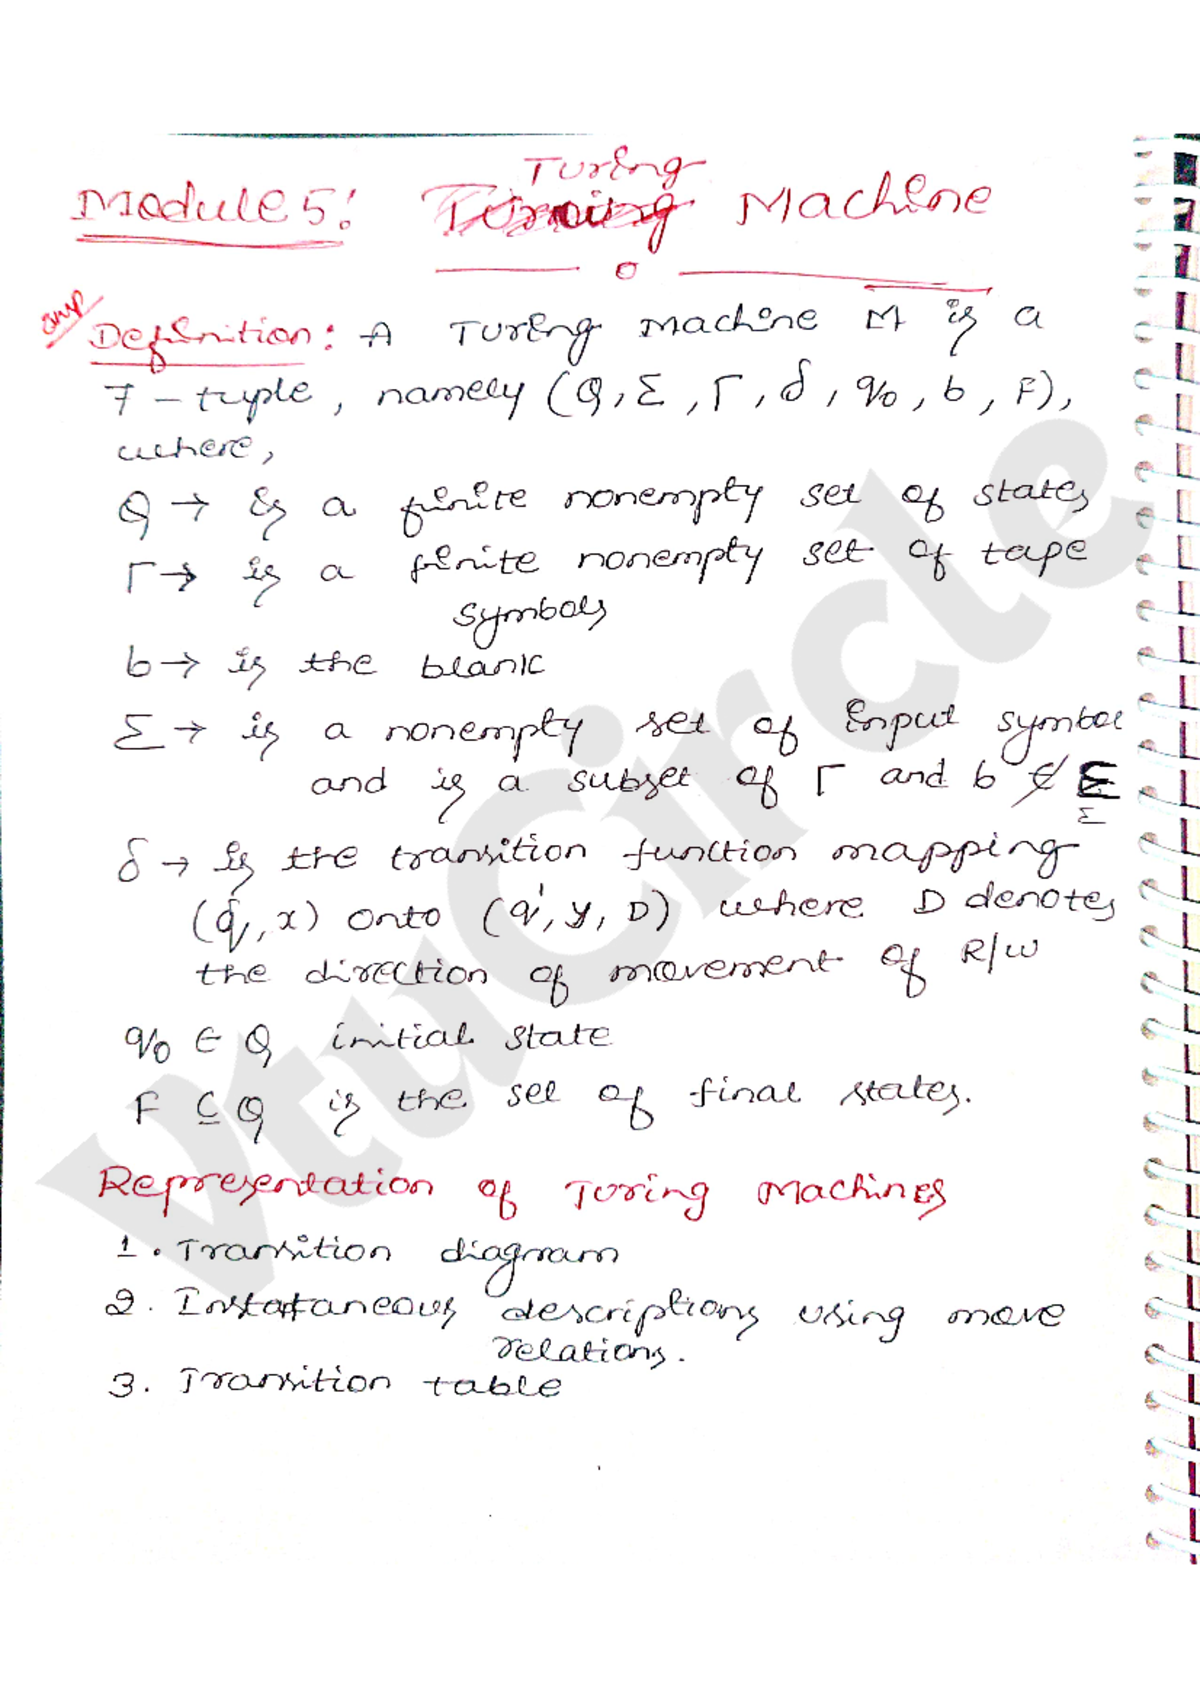 Turing
Module 5: Machine
imp
Definition: A Turing Machine M is a
7-tuple, namely (Q, Σ, Γ, δ, q0, b, F),
where,
Q → is a finite nonempty set of states
Γ → is a finite nonempty set of tape
symbols
b → is the blank
Σ → is a nonempty set of Input symbol
and is a subset of Γ and b ∉ Σ
Σ
δ → is the transition function mapping
(q, x) onto (q', y, D) where D denotes
the direction of movement of R/W
q0 ∈ Q initial state
F ⊆ Q is the set of final states.
Representation of Turing Machines
1. Transition diagram
2. Instataneous descriptions using move
relations.
3. Transition table
VtuCircle